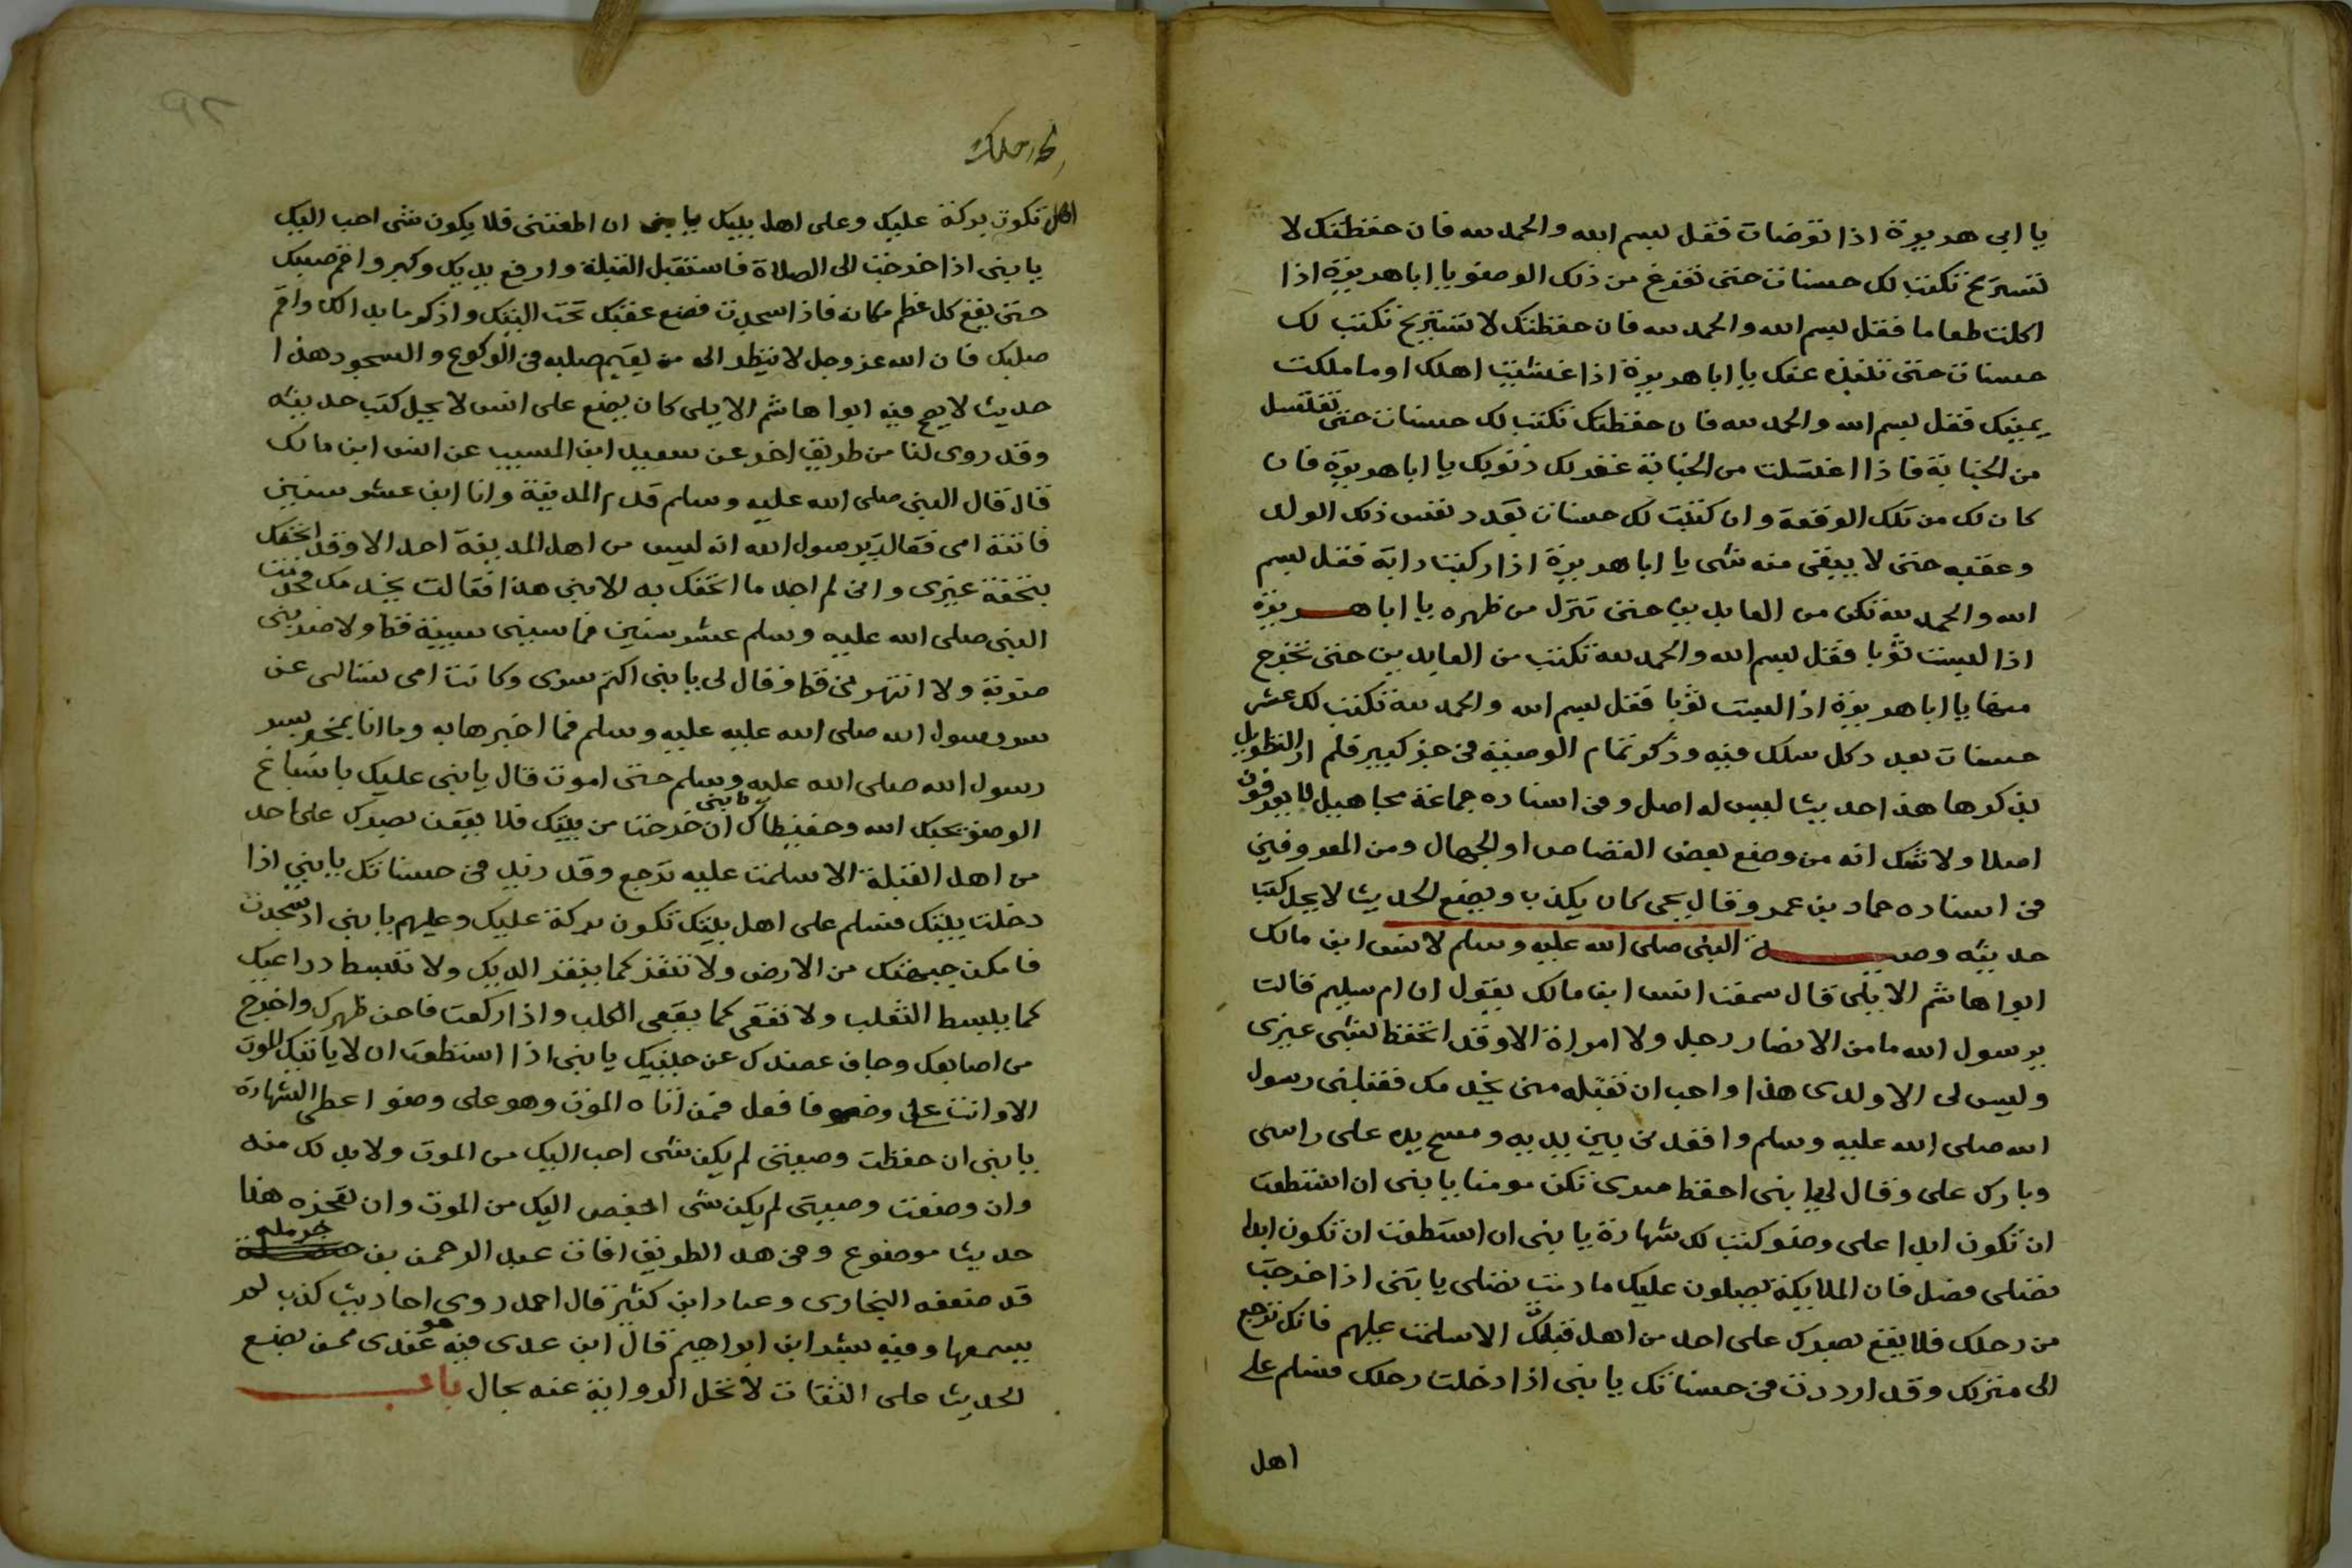 يا ابى هريرة اذا توضات فقل بسم الله والحمد لله فان حفظتك لا
تستريح تكتب لك حسنات حتى تفرغ من ذلك الوضو يا ابا هريرة اذا
اكلت طعاما فقل بسم الله والحمد لله فان حفظتك لا تستريح تكتب لك
حسنات حتى تنبذه عنك يا ابا هريرة اذا غشيت اهلك او ما ملكت
يمينك فقل بسم الله والحمد لله فان حفظتك تكتب لك حسنات حتى تغتسل
من الجنابة فاذا اغتسلت من الجنابة غفر لك ذنوبك يا ابا هريرة فان
كان لك من تلك الوقعة وان كتبت لك حسنات بعدد نفس ذلك الولد
وعقبه حتى لا يبقى منه شى يا ابا هريرة اذا ركبت دابة فقل بسم
الله والحمد لله تكن من العابدين حتى تنزل من ظهره يا ابا هريرة
اذا لبست ثوبا فقل بسم الله والحمد لله تكتب من العابدين حتى تخرج
منها يا ابا هريرة اذا لبست ثوبا فقل بسم الله والحمد لله تكتب لك عشر
حسنات بعدد كل سلك فيه وذكر تمام الوصية فى جز كبير فلم ار التطويل
بذكرها هذا حديث ليس له اصل وفى اسناده جماعة مجاهيل لا يعرفون
اصلا ولا شك انه من وضع بعض القصاص او الجهال ومن المعروفين
فى اسناده حماد بن عمرو قال يحيى كان يكذب ويضع الحديث لا يحل كتب
حديثه وصية النبى صلى الله عليه وسلم لانس ابن مالك
ابوا هاشم الابلى قال سمعت انس ابن مالك يقول ان ام سليم قالت
يرسول الله ما من الانصار رجل ولا امراة الا وقد اتحفك بشى غيرى
وليس لى الا ولدى هذا واحب ان تقبله منى يخدمك فقبلنى رسول
الله صلى الله عليه وسلم واقعدنى بين يديه ومسح يده على راسى
وبارك على وقال لى يا بنى احفظ سرى تكن مومنا يا بنى ان استطعت
ان تكون ابدا على وضو كتب لك شهادة يا بنى ان استطعت ان تكون ابدا
تصلى فصل فان الملايكة يصلون عليك ما دمت تصلى يا بنى اذا خرجت
من رحلك فلا يقع بصرك على احد من اهل قبلتك الا سلمت عليهم فانك ترجع
الى منزلك وقد ازددت فى حسناتك يا بنى اذا دخلت رحلك فسلم على
اهل
رحلك
اهل تكون بركة عليك وعلى اهل بيتك يا بنى ان اطعتنى فلا يكون شى احب اليك
يا بنى اذا خرجت الى الصلاة فاستقبل القبلة وارفع يديك وكبر واقم صلبك
حتى يقع كل عظم مكانه فاذا سجدت فضع عقبك تحت اليتك واذكر ما بدا لك واقم
صلبك فان الله عز وجل لا ينظر الى من يقيم صلبه فى الركوع والسجود هذا
حديث لا يصح فيه ابوا هاشم الايلى كان يضع على انس لا يحل كتب حديثه
وقد روى لنا من طريق اخر عن سعيد ابن المسيب عن انس ابن مالك
قال قال النبى صلى الله عليه وسلم قدم المدينة وانا ابن عشر سنين
فاتته امى فقالت يرسول الله انه ليس من اهل المدينة احد الا وقد اتحفك
بتحفة غيرى وانى لم اجد ما اتحفك به الا بنى هذا فقالت يخدمك فخدمت
النبى صلى الله عليه وسلم عشر سنين فما سبنى سبية قط ولا ضربنى
ضربة ولا انتهرنى قط وقال لى يا بنى اكتم سرى وكانت امى تسالنى عن
سر رسول الله صلى الله عليه عليه وسلم فما اخبرها به وما انا بمخبر بسر
رسول الله صلى الله عليه وسلم حتى اموت قال يا بنى عليك باسباغ
الوضو يحبك الله وحفيظاك يا بنى ان خرجت من بيتك فلا يقعن بصرك على احد
من اهل القبلة الا سلمت عليه ترجع وقد زيد فى حسناتك يا بنى اذا
دخلت بيتك فسلم على اهل بيتك تكون بركة عليك وعليهم يا بنى اذ سجدت
فامكن جبهتك من الارض ولا تنقر كما ينقر الديك ولا تبسط ذراعيك
كما يبسط الثعلب ولا تقعى كما يقعى الكلب واذا ركعت فاحن ظهرك وافرج
من اصابعك وجاف عضدك عن جنبيك يا بنى اذا استطعت ان لا ياتيك الموت
الا وانت على وضو فافعل فمن اتاه الموت وهو على وضوا عطى الشهادة
يا بنى ان حفظت وصيتى لم يكن شى احب اليك من الموت ولا بد لك منه
وان وضعت وصيتى لم يكن شى ابغض اليك من الموت وان تعجزه هذا
حديث موضوع وفى هد الطريق افات عبد الرحمن بن حرملة
قد ضعفه البخارى وعباد ابن كثير قال احمد روى احاديث كذب لم
يسمعها وفيه بشر ابن ابراهيم قال ابن عدى فيه هو عندى ممن يضع
الحديث على الثقات لا تحل الرواية عنه بحال باب